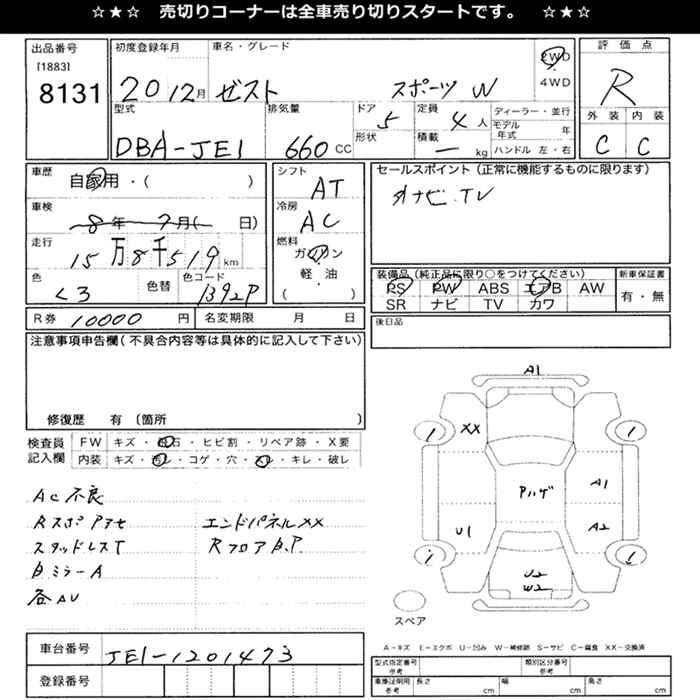 ☆★☆ 売切りコーナーは全車売り切りスタートです。 ☆★☆
出品番号 初度登録年月 車名・グレード 2WD 評価点
[1883] 8131 20 12月 ゼスト スポーツ W 4WD R
型式 排気量 ドア 5 定員 4人 ディーラー・並行 外装 内装
DBA-JE1 660cc 形状 積載 — kg モデル年式 年 C C
ハンドル 左・右
車歴 自家用・( ) シフト AT セールスポイント (正常に機能するものに限ります)
車検 8年 7月( 日) 冷房 AC 外ナビ.TV
走行 15万8千519km 燃料 ガソリン 軽・油 ( )
色 クロ 色替 色コード B92P
装備品 (純正品に限り○をつけてください) 新車保証書
PS PW ABS エアB AW 有・無
SR ナビ TV カワ
R券 10000円 名変期限 月 日 後日品
注意事項申告欄 (不具合内容等は具体的に記入して下さい)
修復歴 有 (箇所 )
検査員記入欄 FW キズ・飛石・ヒビ割・リペア跡・X要
内装 キズ・汚レ・コゲ・穴・スレ・キレ・破レ
AC不良
RスポPアセ エンドパネルXX
スタッドレスT RフロアB.P.
BミラーA
各AU
A1
XX
Pハゲ A1
U1 A2
U2
W2
スペア
A-キズ E-エクボ U-凹み W-補修跡 S-サビ C-腐食 XX-交換済
車台番号 JE1-1201473
登録番号
型式指定番号 参考 類別区分番号 参考
車庫証明用 参考 長さ cm 幅 cm 高さ cm